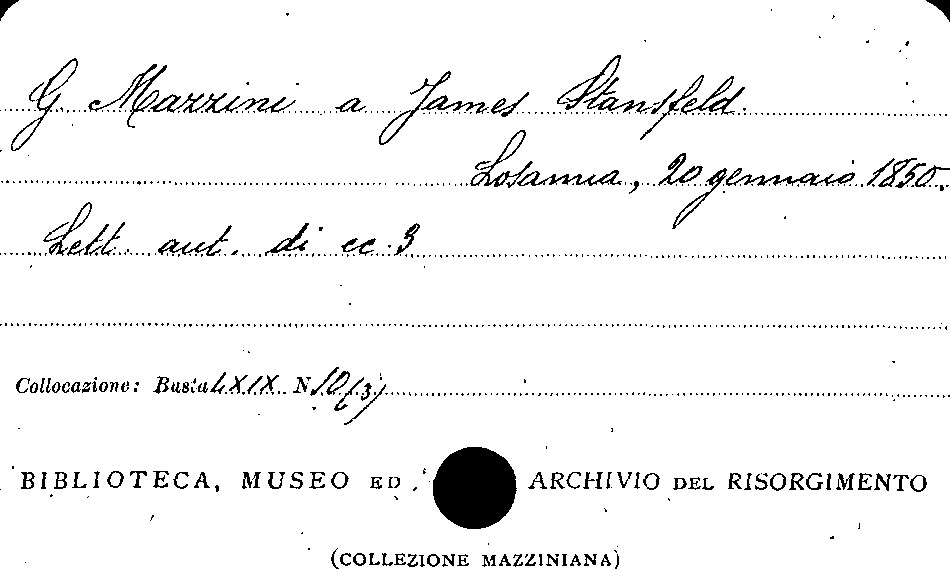 G. Mazzini a James Stansfeld.
Losanna, 20 gennaio 1850.
Lett. aut. di cc. 3
Collocazione: Busta LXIX N. 10 (3)
BIBLIOTECA, MUSEO ED ARCHIVIO DEL RISORGIMENTO
(COLLEZIONE MAZZINIANA)